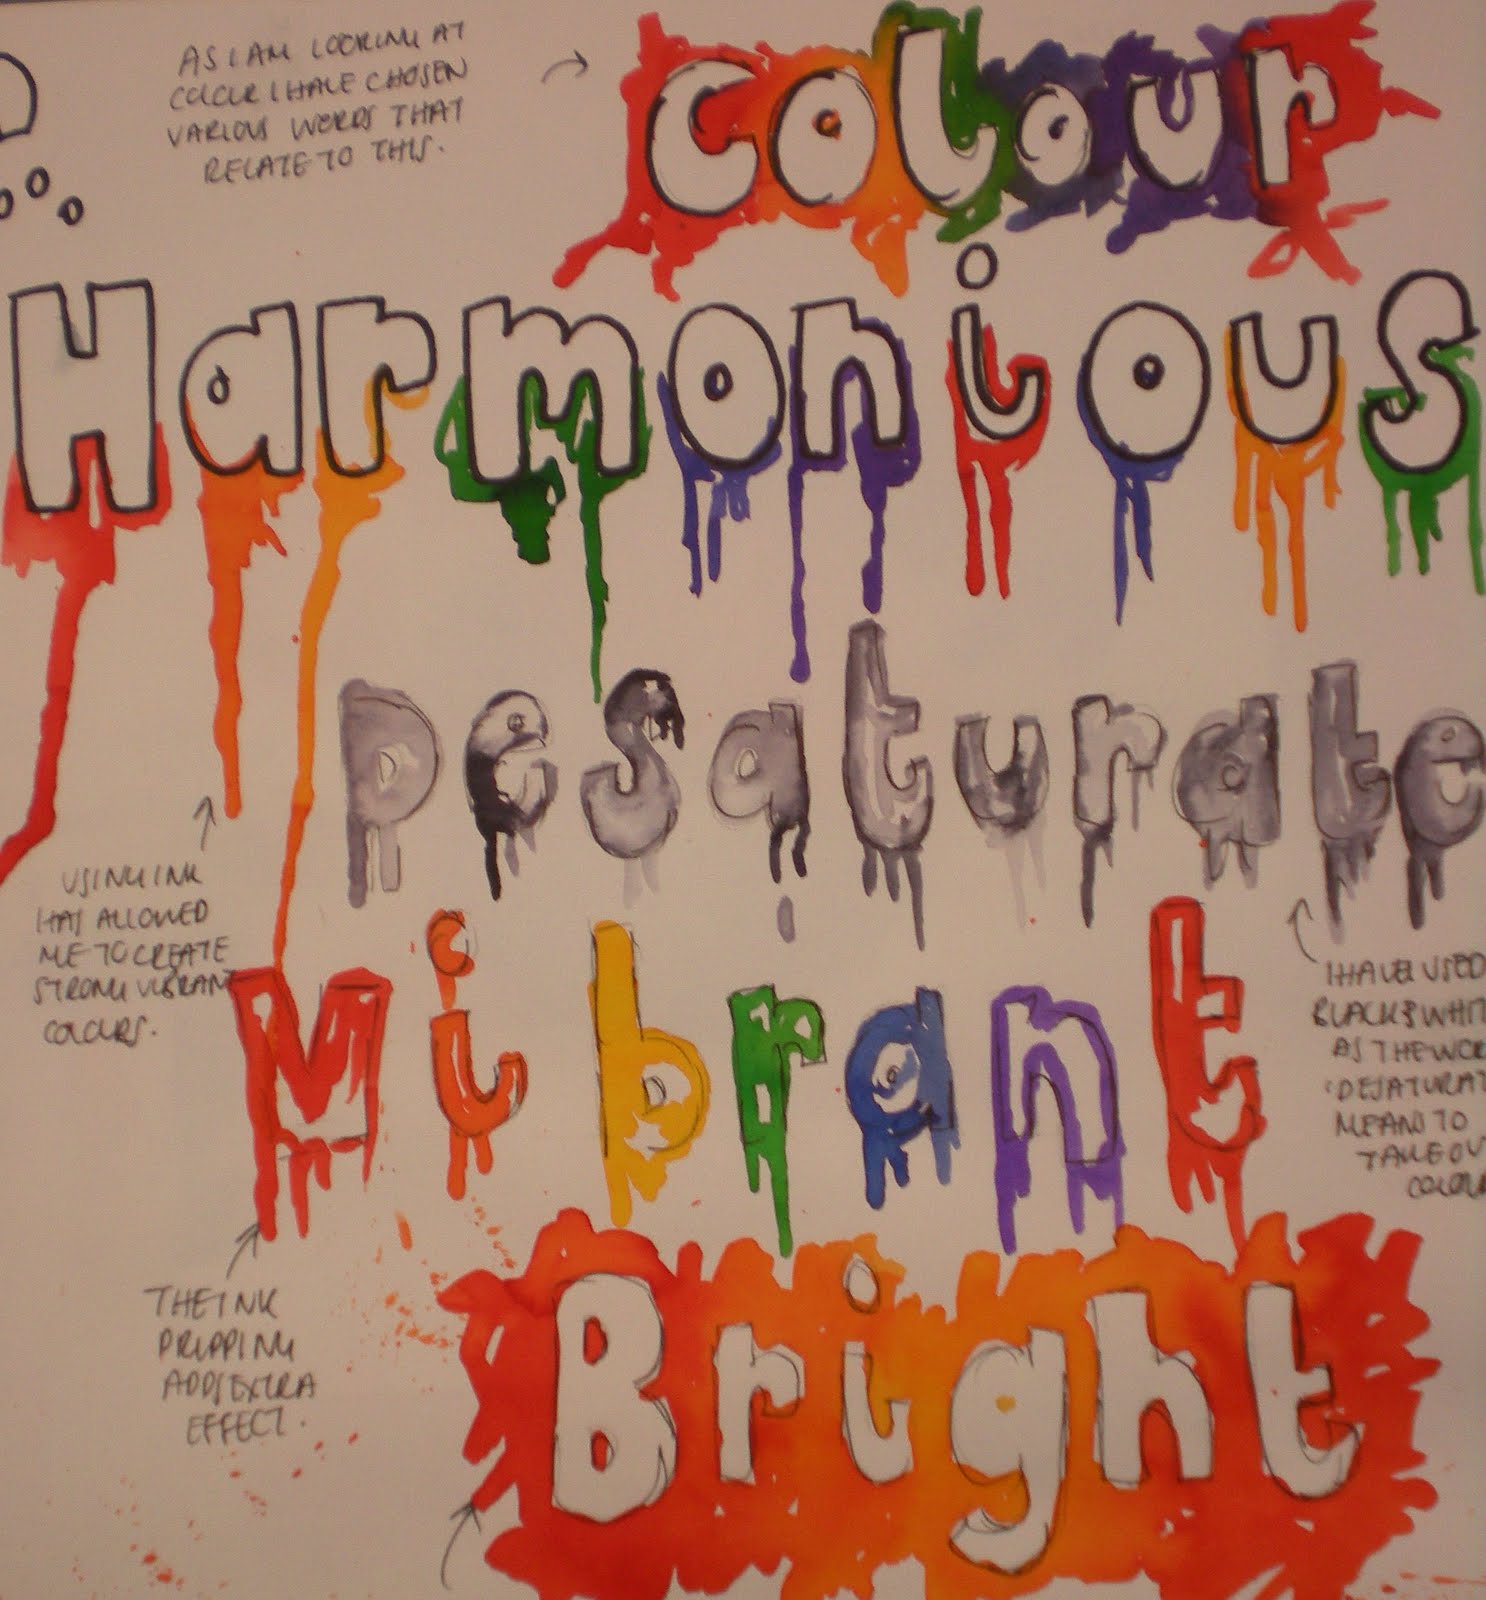 AS I AM LOOKING AT
COLOUR I HAVE CHOSEN
VARIOUS WORDS THAT
RELATE TO THIS.
Colour
Harmonious
Desaturate
USING INK
HAS ALLOWED
ME TO CREATE
STRONG VIBRANT
COLOURS.
Vibrant
I HAVE USED
BLACK & WHIT
AS THE WOR
'DESATURAT
MEANS TO
TAKE OU
COLOU
THE INK
DRIPPING
ADDS EXTRA
EFFECT.
Bright